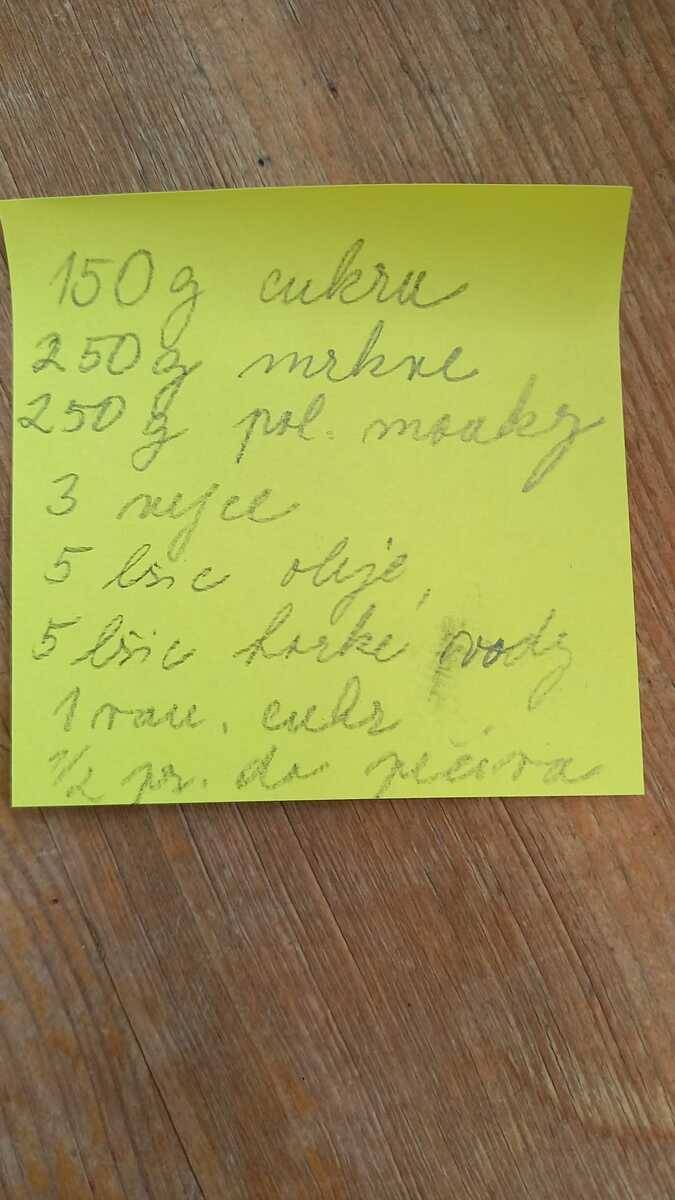 150g cukru
250g mrkve
250g pol. mouky
3 vejce
5 lžic oleje,
5 lžic horké vody
1 van. cukr
1/2 pr. do pečiva